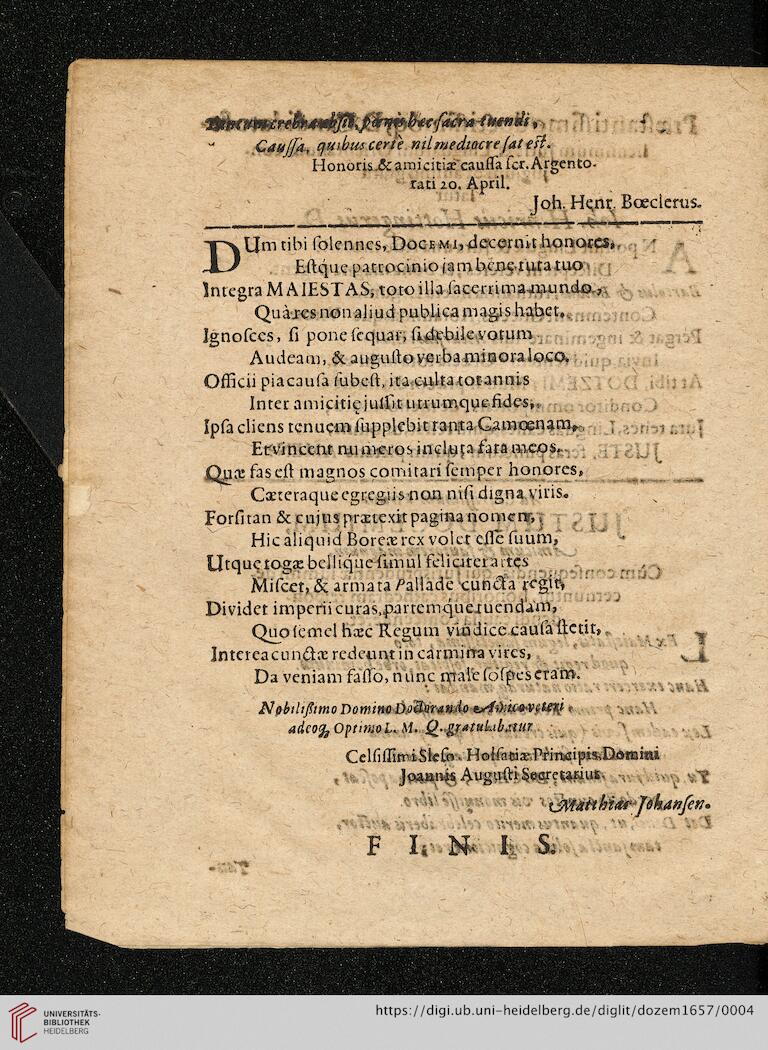 hæc sacra tuendi,
Caussa, quibus certè nil mediocre sat est.
Honoris & amicitiæ caussa scr. Argento-
rati 20. April.
Joh. Henr. Bœclerus.
DUm tibi solennes, DOCEMI, decernit honores,
Estq́ue patrocinio jam bene tuta tuo
Integra MAIESTAS, toto illa sacerrima mundo,
Quà res non aliud publica magis habet.
Ignosces, si pone sequar, si debile votum
Audeam, & augusto verba minora loco.
Officii pia causa subest, ita culta tot annis
Inter amicitię jussit utrumque fides,
Ipsa cliens tenuem supplebit tanta Camœnam,
Et vincent numeros incluta fata meos.
Quæ fas est magnos comitari semper honores,
Cæteraque egregiis non nisi digna viris.
Forsitan & cujus prætexit pagina nomen,
Hic aliquid Boreæ rex volet esse suum,
Utque togæ bellique simul feliciter artes
Miscet, & armata Pallade cuncta regit,
Dividet imperii curas, partemq́ue tuendam,
Quo semel hæc Regum vindice causa stetit,
Interea cunctæ redeunt in carmina vires,
Da veniam fasso, nunc male sospes eram.
Nobilißimo Domino Doctorando Amico veteri
adeoq; Optimo L. M. Q. gratulabatur
Celsissimi Sleso-Holsatiæ Principis Domini
Joannis Augusti Secretarius
Matthias Johansen.
FINIS.
UNIVERSITÄTS-
BIBLIOTHEK
HEIDELBERG
https://digi.ub.uni-heidelberg.de/diglit/dozem1657/0004